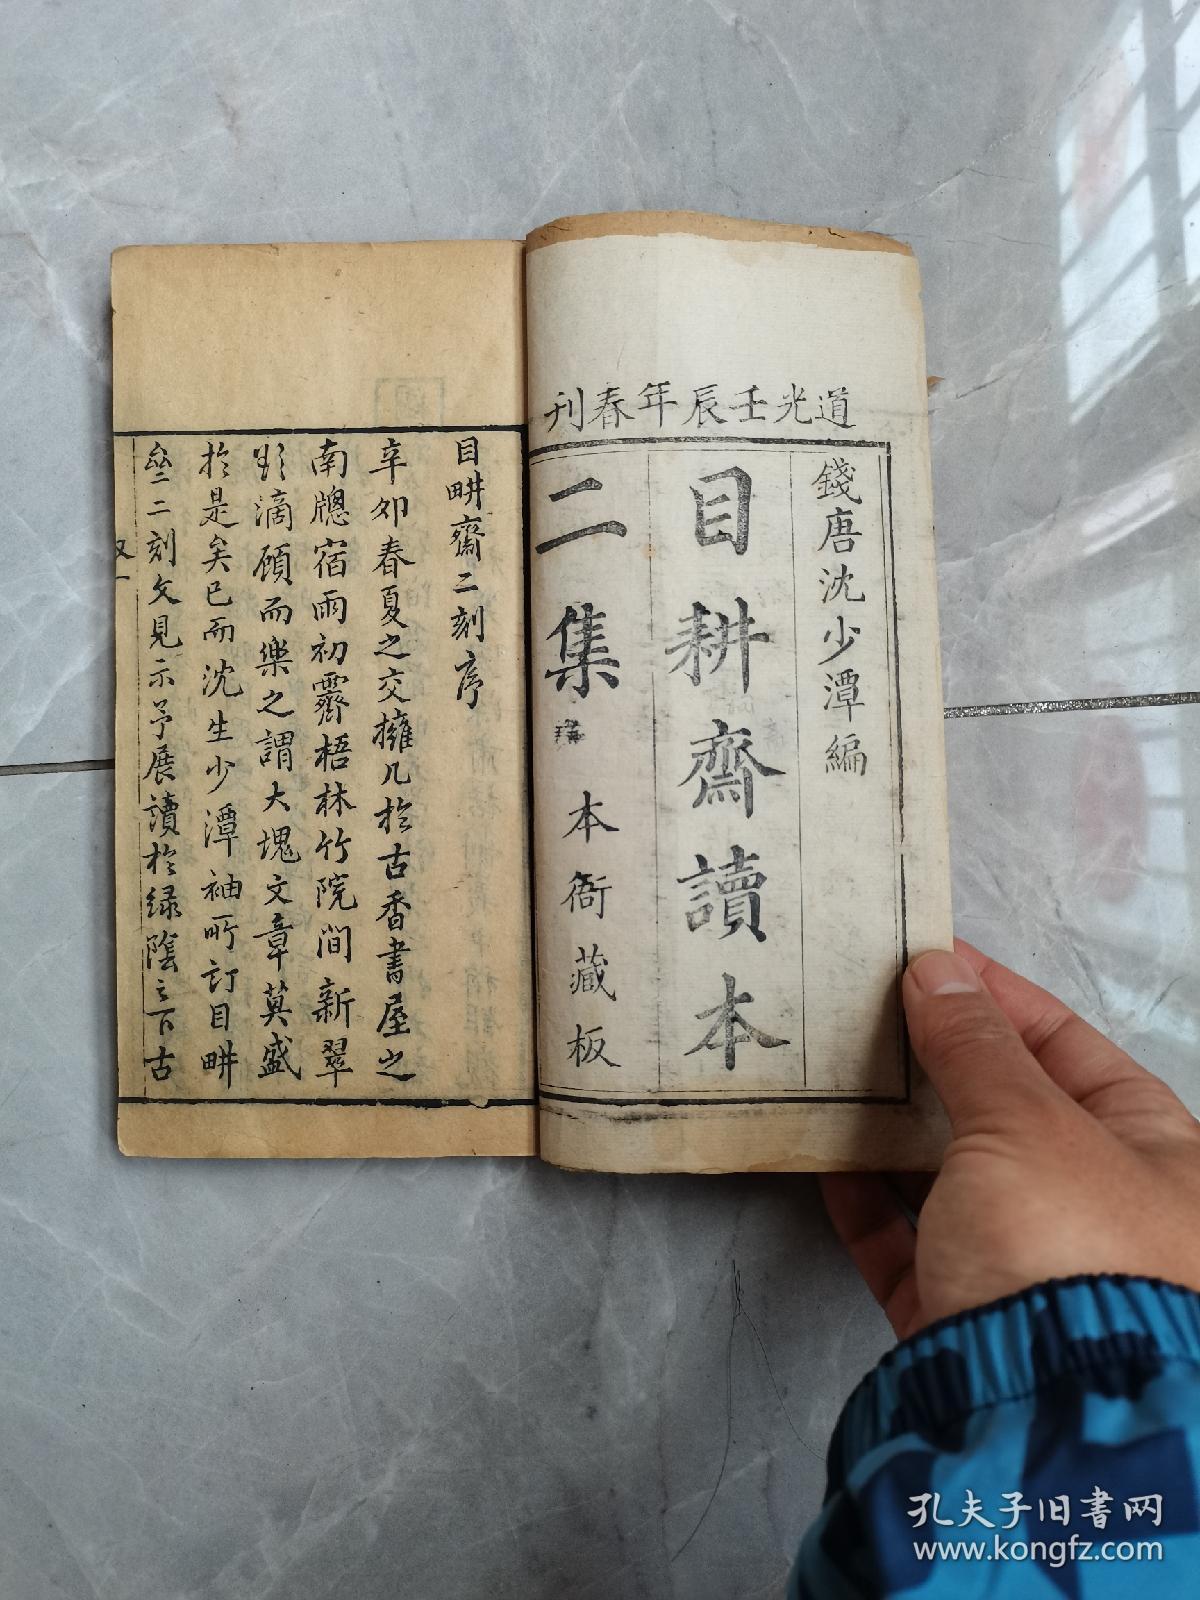 道光壬辰年春刊
錢唐沈少潭編
目耕齋讀本
二集
本衙藏板
目畊齋二刻序
辛卯春夏之交擁几於古香書屋之
南牕宿雨初霽梧林竹院間新翠
滴顧而樂之謂大塊文章莫盛
於是矣已而沈生少潭袖所訂目畊
二刻文見示予展讀於绿陰之下古
孔夫子旧书网
www.kongfz.com